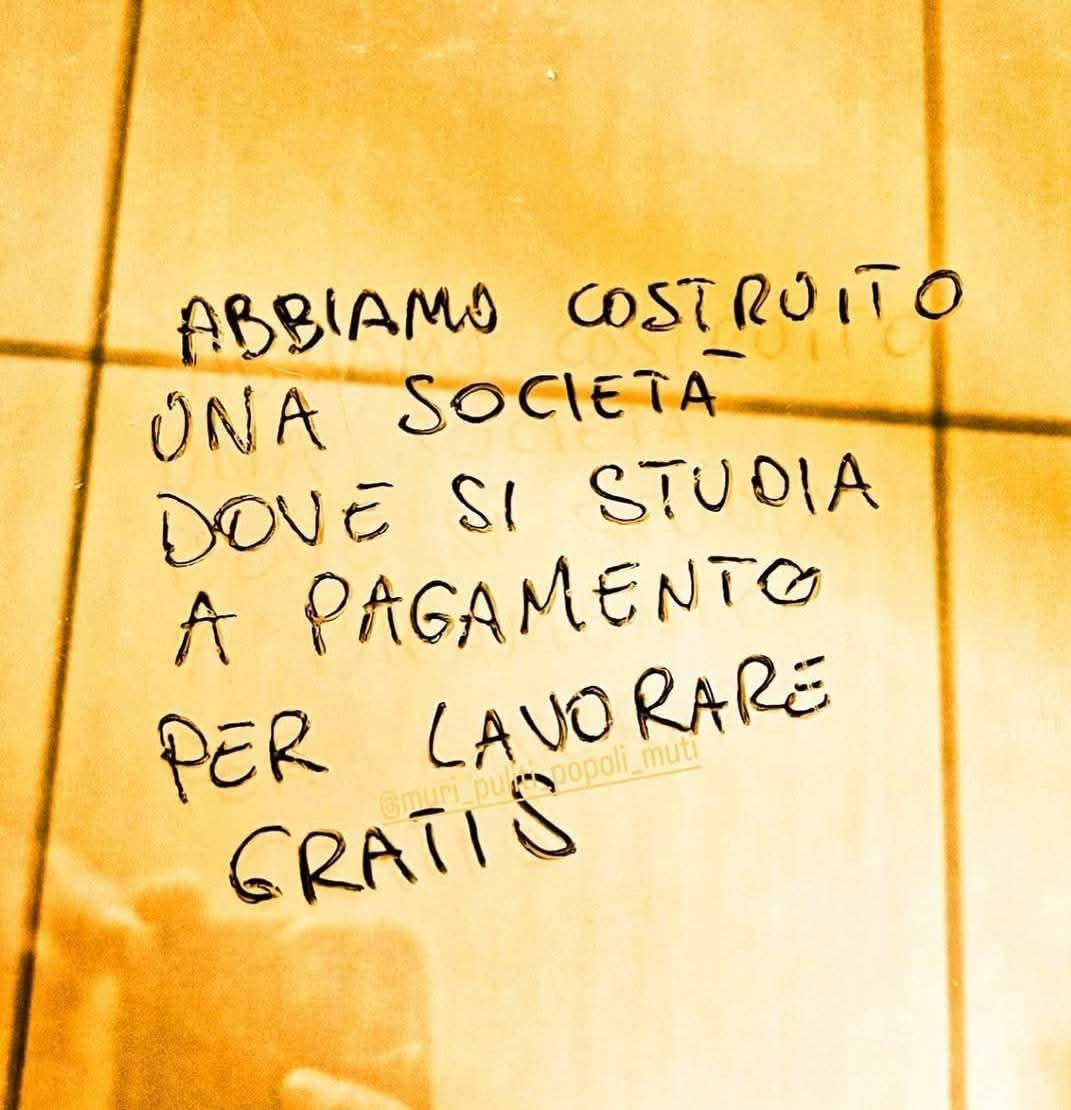 ABBIAMO COSTRUITO
UNA SOCIETÀ
DOVE SI STUDIA
A PAGAMENTO
PER LAVORARE
@muri_puliti_popoli_muti
GRATIS